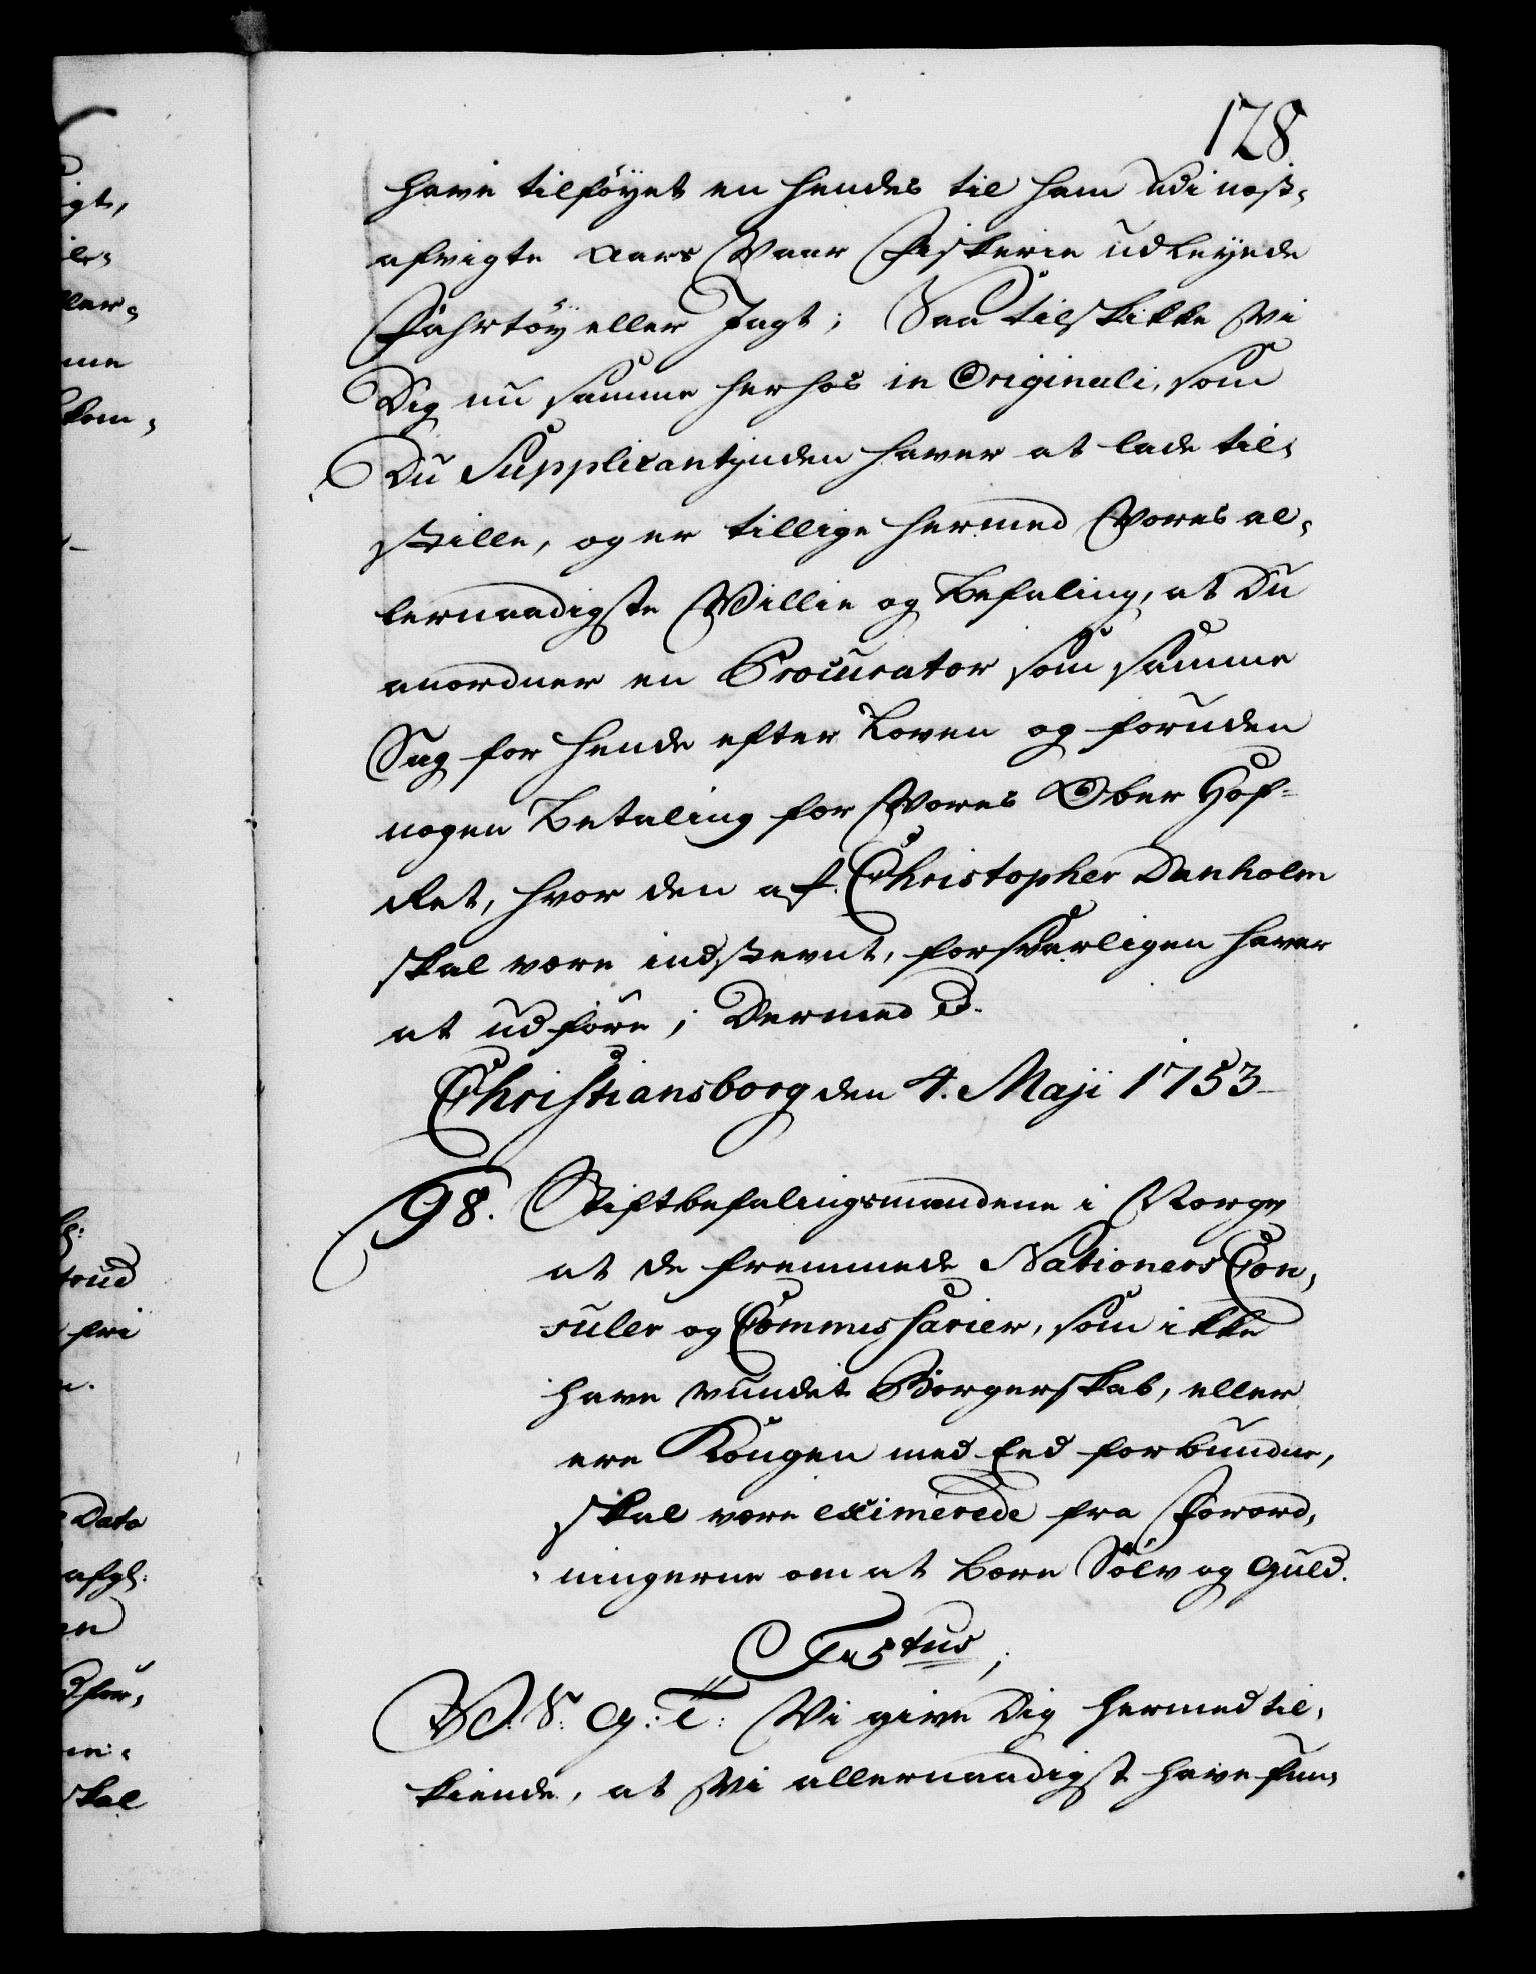 128
have tilföyet en hendes til ham udi næst-
afvigte Aars Vaar Fiskerie udleyede
Fahrtöy eller Jagt; Saa tilskikke Vi
Dig nu samme herhos in Originali, som
Du Supplicantinden haver at lade til-
stille, og er tillige hermed Vores al-
lernaadigste Villie og Befaling, at Du
anordner en Procurator som samme
Sag for hende efter Loven og foruden
nogen Betaling for Vores Ober Hof-
Ret, hvor den af Christopher Danholm
skal være indstevnt, forsvarligen haver
at udföre; Dermed
Christiansborg den 4. Maji 1753
98. Stiftbefalingsmændene i Norge
at de fremmede Nationers Con-
suler og Commissarier, som ikke
have vundet Borgerskab, eller
ere Kongen med Eed forbundne,
skal være eximerede fra Forord-
ningerne om at bære Sölv og Guld.
F 5tus
V: G: T: Vi give Dig hermed til-
kiende, at Vi allernaadigst have fun-
igt,
ler-
me
kom-
fri
Dato
afg:
en
skal